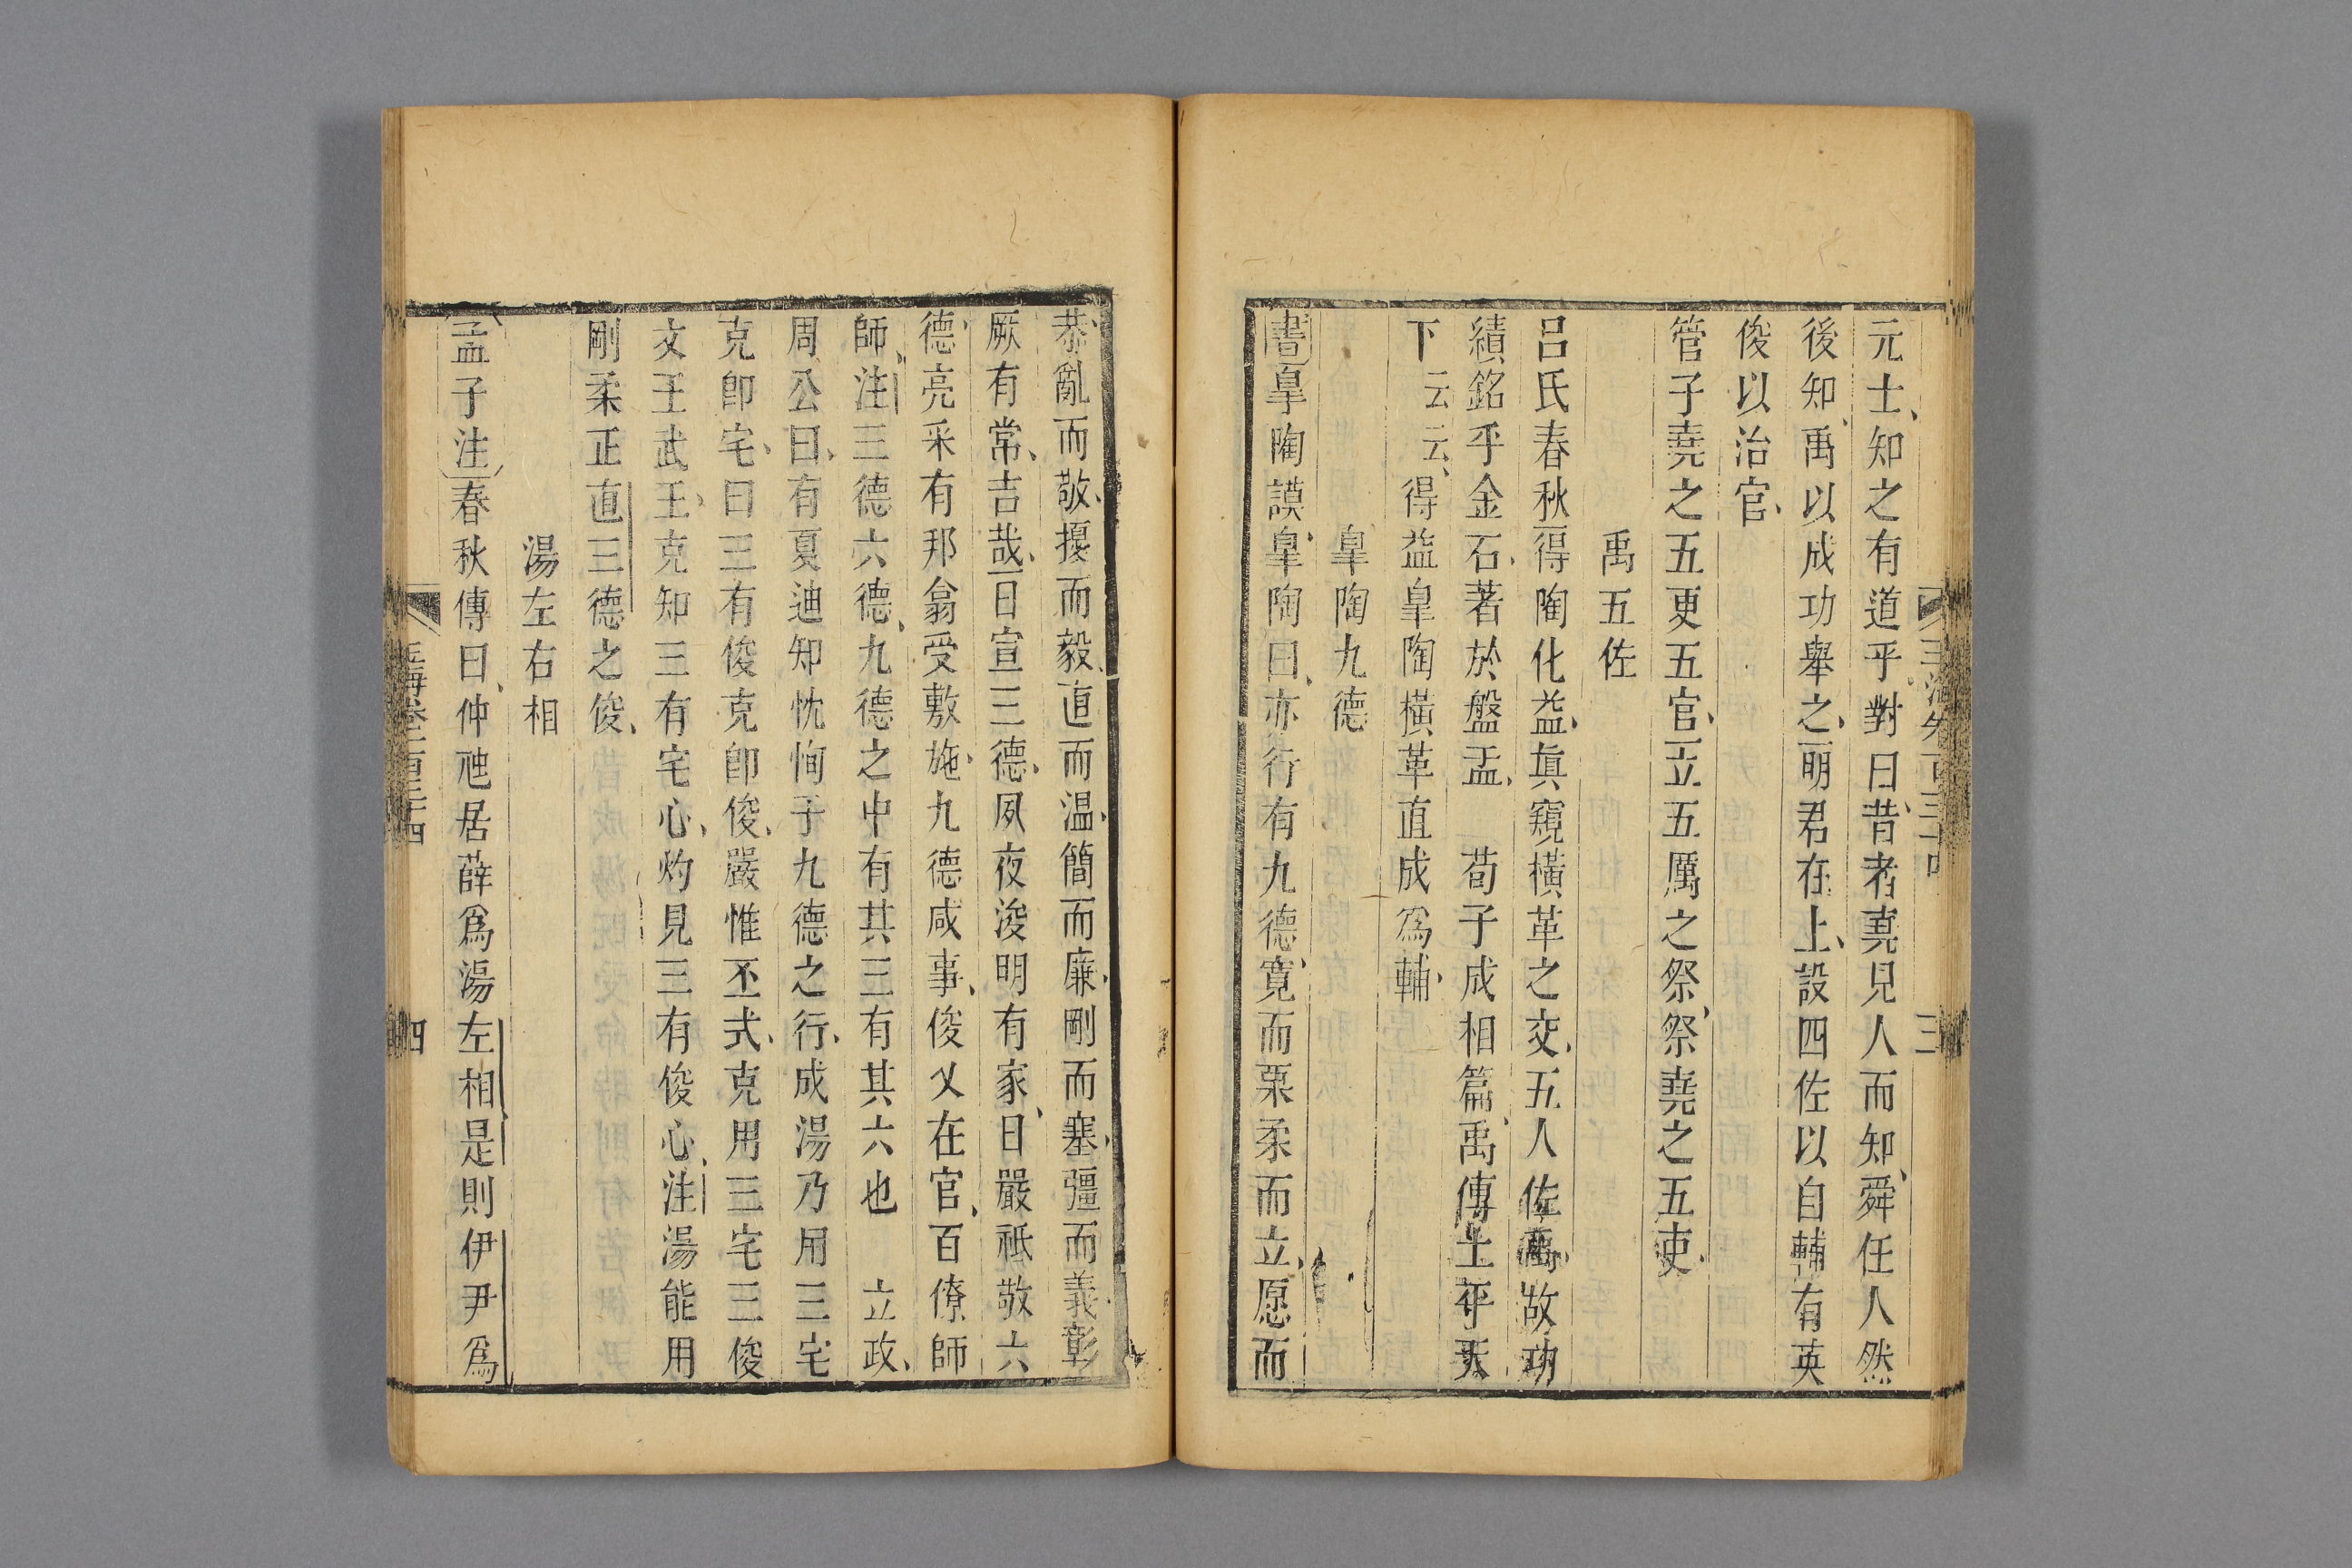 玉海卷百三十四
三
元士、知之有道乎、對曰、昔者堯見人而知、舜任人然
後知、禹以成功舉之、明君在上、設四佐以自輔、有英
俊以治官、
管子堯之五更五官、立五厲之祭、祭堯之五吏、
禹五佐
呂氏春秋得陶化益、眞窺橫革之交、五人佐禹、故功
績銘乎金石、著於盤盂、荀子成相篇、禹傅土平天
下云云、得益皐陶橫革直成爲輔、
皐陶九德
書皐陶謨、皐陶曰、亦行有九德、寬而栗柔而立、愿而
恭、亂而敬、擾而毅、直而温、簡而廉、剛而塞、彊而義、彰
厥有常、吉哉、日宣三德、夙夜浚明有家、日嚴祗敬六
德、亮采有邦翕受敷施、九德咸事、俊乂在官、百僚師
師、注三德六德、九德之中有其三有其六也 立政、
周公曰、有夏迪知忱恂于九德之行、成湯乃用三宅
克卽宅、曰三有俊克卽俊、嚴惟丕式、克用三宅三俊
文王武王、克知三有宅心、灼見三有俊心、注湯能用
剛柔正直三德之俊、
湯左右相
孟子注春秋傳曰、仲虺居薛爲湯左相、是則伊尹爲
玉海卷百三十四
四